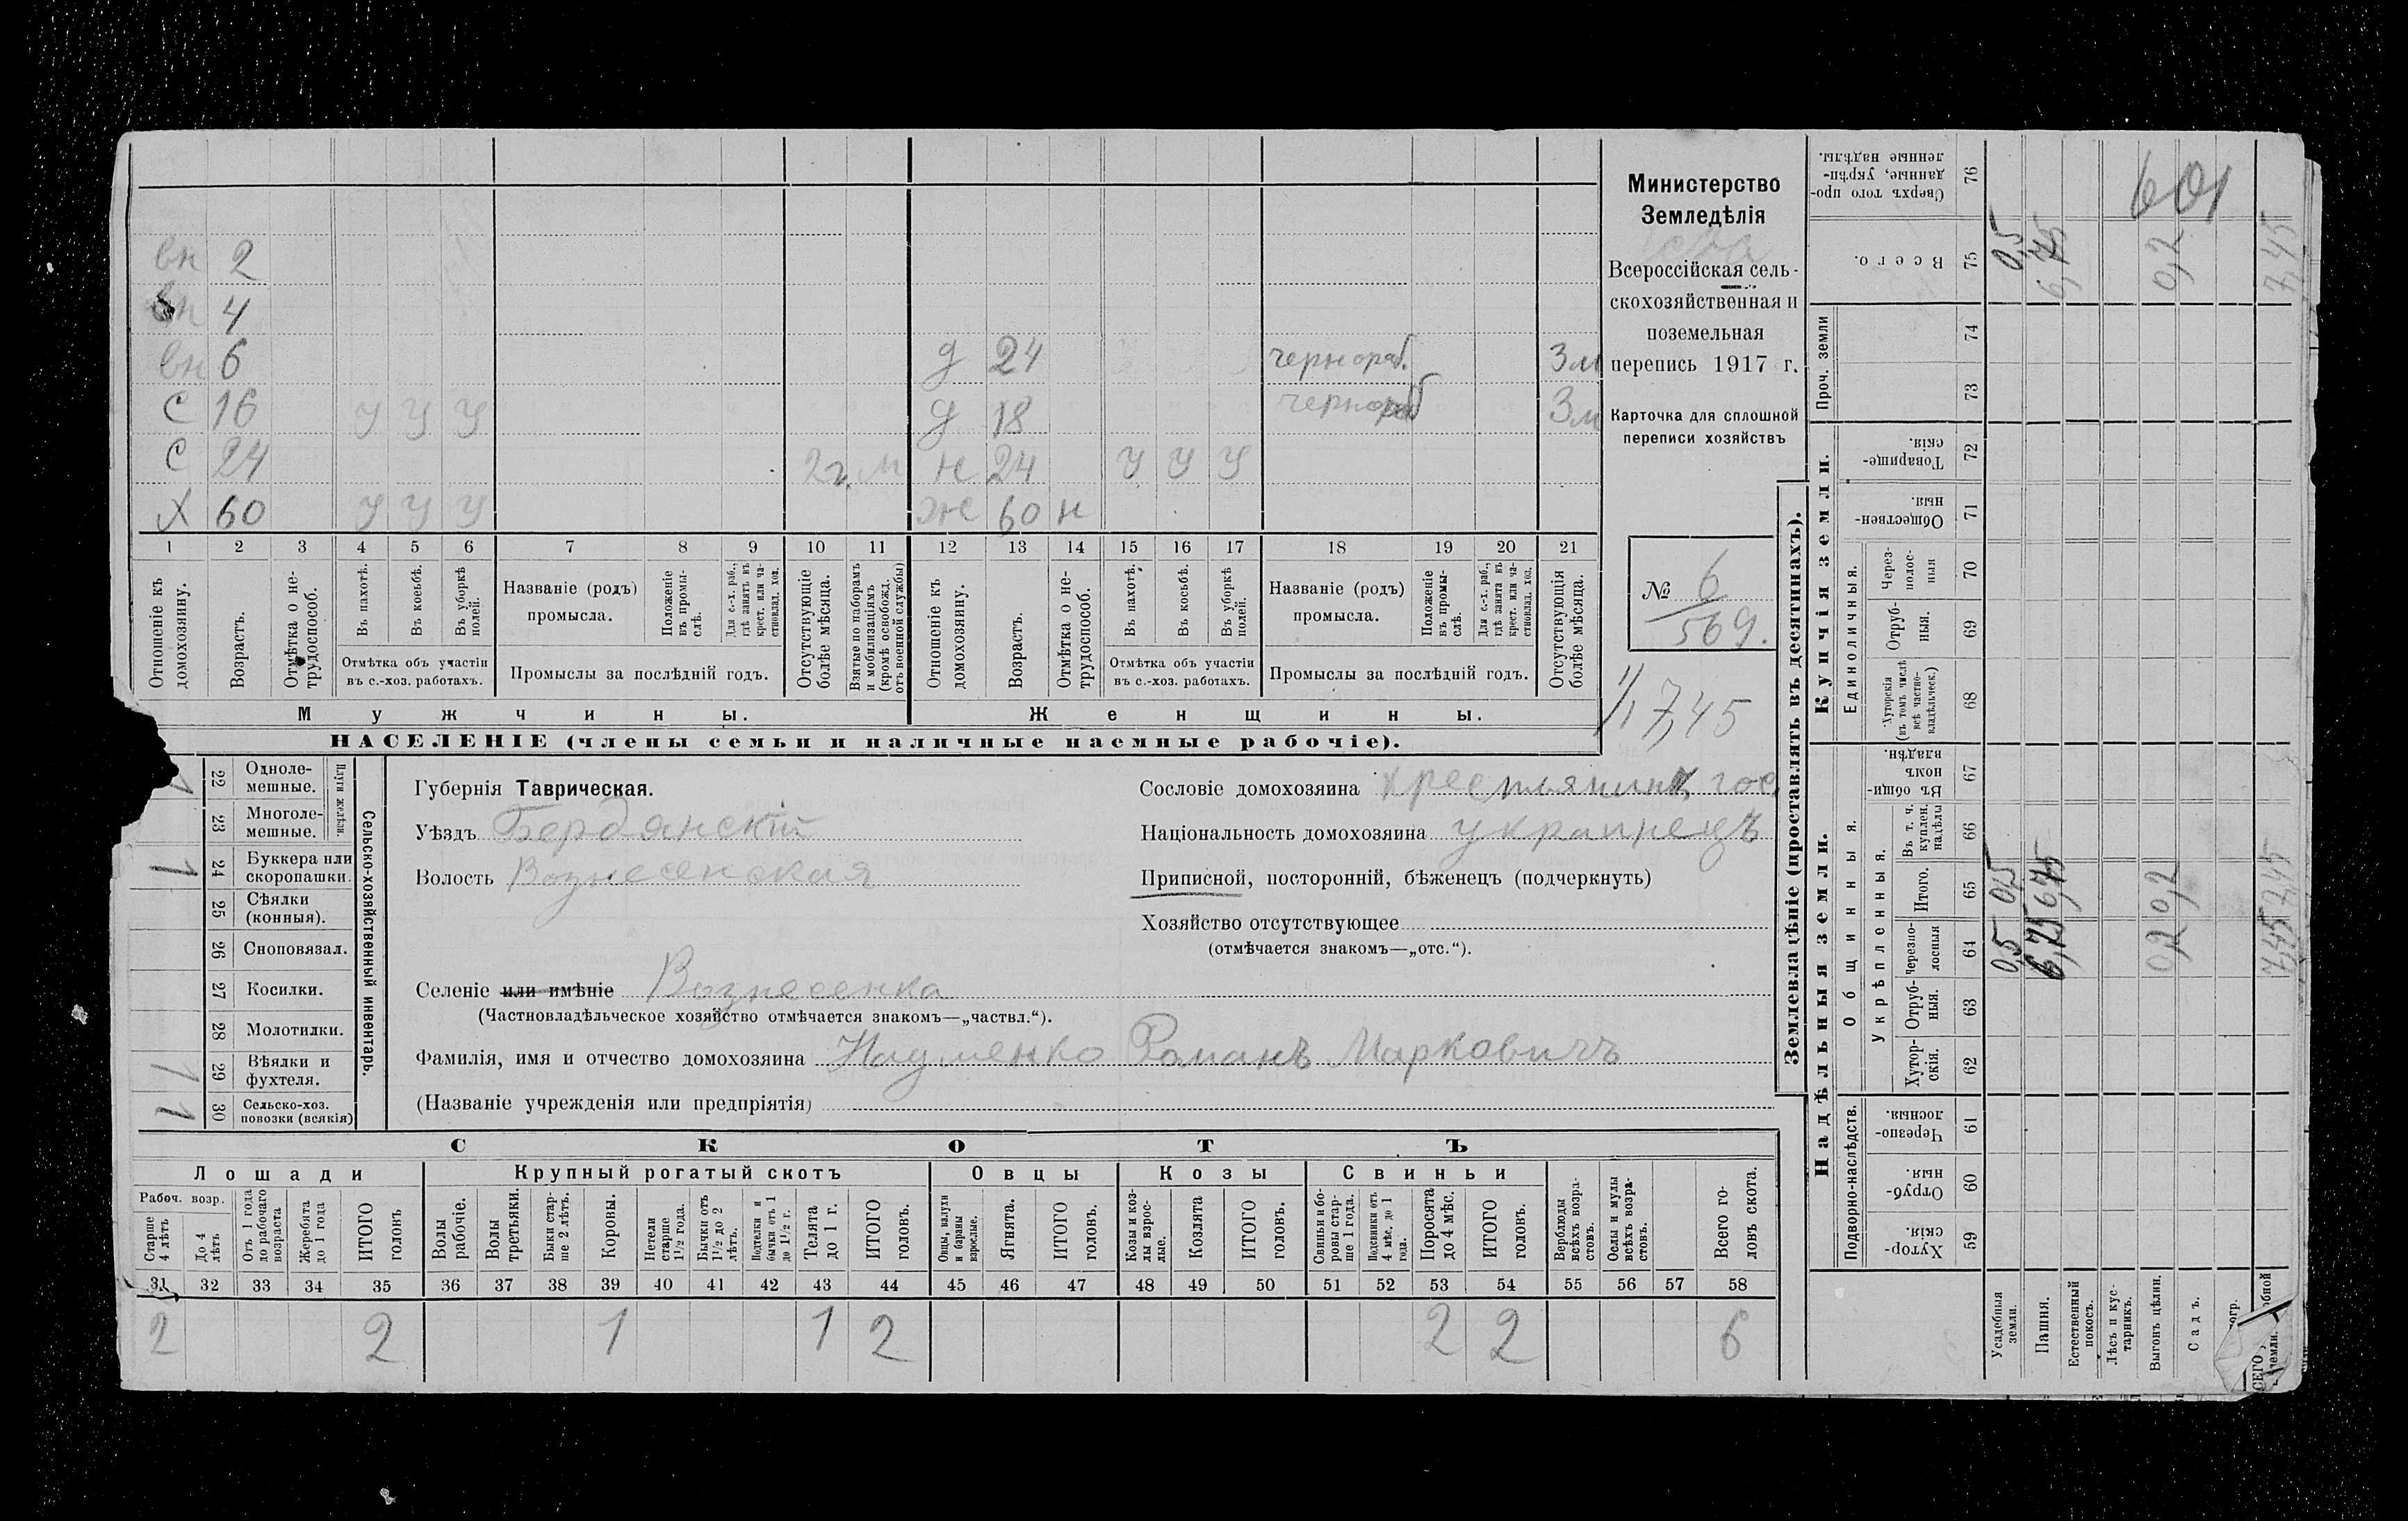 вн 2
вн 4
вн 6 д 24 чернораб. 3 м
С 16 У У У д 18 чернораб 3 м
С 24 2 г. м н 24 У У У
Х 60 У У У ж 60 н
1 2 3 4 5 6 7 8 9 10 11 12 13 14 15 16 17 18 19 20 21
Отношеніе къ домохозяину.
Возрастъ.
Отмѣтка о не-трудоспособ.
Въ пахотѣ.
Въ косьбѣ.
Въ уборкѣ полей.
Отмѣтка объ участіи въ с.-хоз. работахъ.
Названіе (родъ) промысла.
Положеніе въ промы-слѣ.
Для с.-х. раб., гдѣ занятъ въ крест. или ча-стновлад. хоз.
Промыслы за послѣдній годъ.
Отсутствующіе болѣе мѣсяца.
Взятые по наборамъ и мобилизаціямъ (кромѣ освобожд. отъ военной службы)
Отношеніе къ домохозяину.
Возрастъ.
Отмѣтка о не-трудоспособ.
Въ пахотѣ.
Въ косьбѣ.
Въ уборкѣ полей.
Отмѣтка объ участіи въ с.-хоз. работахъ.
Названіе (родъ) промысла.
Положеніе въ промы-слѣ.
Для с.-х. раб., гдѣ занята въ крест. или ча-стновлад. хоз.
Промыслы за послѣдній годъ.
Отсутствующія болѣе мѣсяца.
Мужчины.
Женщины.
НАСЕЛЕНІЕ (члены семьи и наличные наемные рабочіе).
Министерство
Земледѣлія
Всероссійская сель-
скохозяйственная и
поземельная
перепись 1917 г.
Карточка для сплошной
переписи хозяйствъ
№ 6
569.
1/1 7,45
22 Одноле-мешные.
23 Многоле-мешные.
Плуги желѣзн.
1 24 Буккера или скоропашки.
25 Сѣялки (конныя).
26 Сноповязал.
27 Косилки.
28 Молотилки.
1 29 Вѣялки и фухтеля.
1 30 Сельско-хоз. повозки (всякія)
Сельско-хозяйственный инвентарь.
Губернія Таврическая.
Уѣздъ Бердянскій
Волость Вознесенская
Селеніе или имѣніе Вознесенка
(Частновладѣльческое хозяйство отмѣчается знакомъ—„частвл.“).
Фамилія, имя и отчество домохозяина Надменко Романъ Марковичъ
(Названіе учрежденія или предпріятія)
Сословіе домохозяина крестьянинъ гос
Національность домохозяина украинецъ
Приписной, посторонній, бѣженецъ (подчеркнуть)
Хозяйство отсутствующее
(отмѣчается знакомъ—„отс.“).
СКОТЪ
Лошади Крупный рогатый скотъ Овцы Козы Свиньи
Рабоч. возр.
Старше 4 лѣтъ
До 4 лѣтъ
Отъ 1 года до рабочаго возраста
Жеребята до 1 года
ИТОГО головъ
Волы рабочіе.
Волы третьяки.
Быки стар-ше 2 лѣтъ.
Коровы.
Нетели старше 1½ года.
Бычки отъ 1½ до 2 лѣтъ.
Подтелки и бычки отъ 1 до 1½ г.
Телята до 1 г.
ИТОГО головъ.
Овцы, валухи и бараны взрослые.
Ягнята.
ИТОГО головъ.
Козы и коз-лы взрос-лые.
Козлята
ИТОГО головъ.
Свиньи и бо-ровы стар-ше 1 года.
Подсвинки отъ 4 мѣс. до 1 года.
Поросята до 4 мѣс.
ИТОГО головъ.
Верблюды всѣхъ возра-стовъ.
Ослы и мулы всѣхъ возра-стовъ.
Всего го-ловъ скота.
31 32 33 34 35 36 37 38 39 40 41 42 43 44 45 46 47 48 49 50 51 52 53 54 55 56 57 58
2 2 1 1 2 2 2 6
Землевладѣніе (проставлять въ десятинахъ).
Надѣльныя земли.
Купчія земли.
Проч. земли
Подворно-наслѣдств.
Общинныя.
Укрѣпленныя.
Единоличныя.
Сверхъ того про-данные, укрѣп-ленные надѣлы. 76
Всего. 75
74
73
Товарище-скія. 72
Обществен-ныя. 71
Через-полос-ныя 70
Отруб-ныя. 69
Хуторскія (въ томъ числѣ всѣ частно-владѣльческ.) 68
Въ общи-номъ владѣн. 67
Въ т. ч. куплен. надѣлы 66
Итого. 65
Черезпо-лосныя 64
Отруб-ныя. 63
Хутор-скія. 62
Черезпо-лосныя. 61
Отруб-ныя. 60
Хутор-скія. 59
Усадебныя земли. 0,5 0,5 0,5
Пашня. 6,75 6,75 6,75
Естественный покосъ.
Лѣсъ и кус-тарникъ.
Выгонъ цѣлин. 0,2 0,2 0,2
Садъ.
7,45 7,45 7,45
601